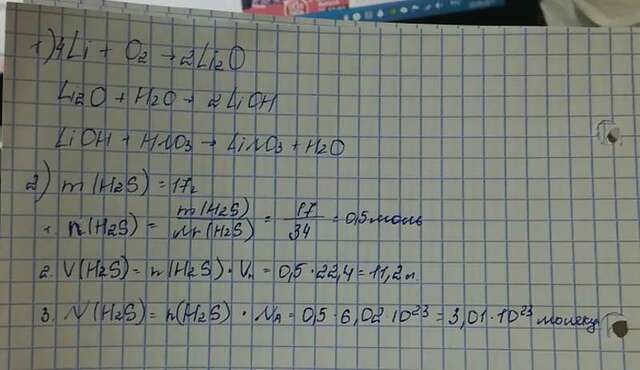 1) 4Li + O2 → 2Li2O
Li2O + H2O → 2LiOH
LiOH + HNO3 → LiNO3 + H2O
2) m(H2S) = 17г
1. n(H2S) = m(H2S) / Mr(H2S) = 17 / 34 = 0,5 моль
2. V(H2S) = n(H2S) · Vn = 0,5 · 22,4 = 11,2 л.
3. N(H2S) = n(H2S) · NA = 0,5 · 6,02 · 10²³ = 3,01 · 10²³ молеку